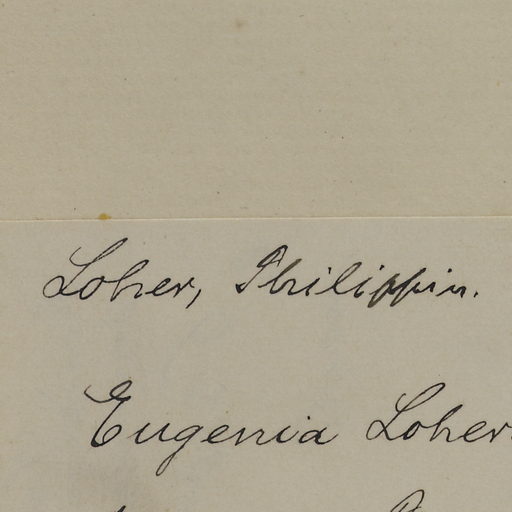 Loher, Philippin.
Eugenia Loher